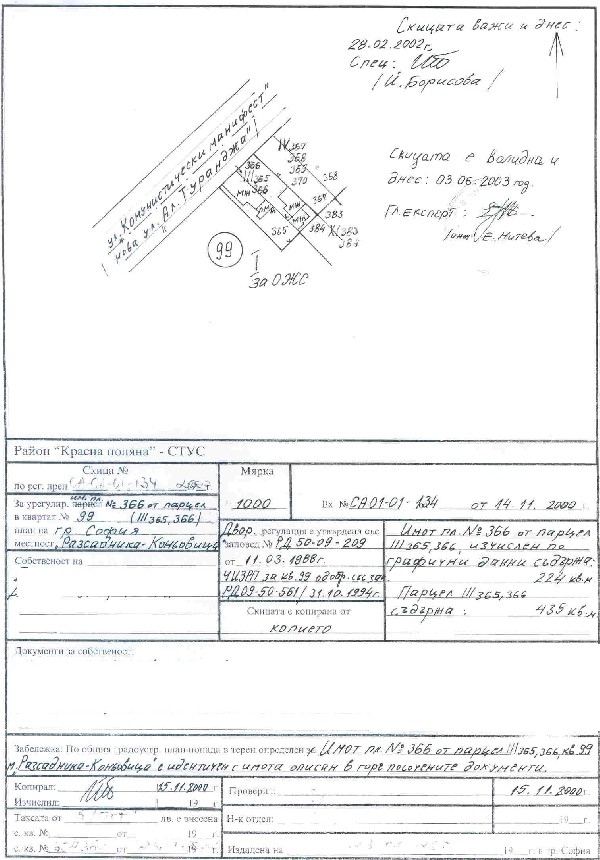 Скицата важи и днес:
28.02.2002г.
Спец:
/Й. Борисова/
ул. "Комунистически манифест"
/нова ул. "Ал. Туранджа"/
366
III 365
366
МЖ
365
IV 367
368
369
370
368
МЖ
364
383
384
XI 383
384
99
I
За ОЖС
Скицата е валидна и
днес: 03.06.2003 год.
Гл. експерт:
/инж. Е. Митева/
Район "Красна поляна" - СТУС
Скица №
по рег. прен. СА01-01-134
За урегулир. им. пл. № 366 от парцел
в квартал № 99 (III 365,366)
план на гр. София
местност "Разсадника-Коньовица"
Собственост на
Мярка
1000
Вх. № СА01-01-134 от 14.11.2000 г.
Двор. регулация е утвърдена със
заповед № РД 50-09-209
от 11.03.1988г.
ЧИЗРП за кв. 99 одобр. със зап.
РД09-50-561/31.10.1994г.
Скицата е копирана от
копието
Имот пл. № 366 от парцел
III 365,366, изчислен по
графични данни съдържа:
224 кв.м
Парцел III 365,366
съдържа: 435 кв.м
Документи за собственост:
Забележка: По общия градоустр. план попада в терен определен Имот пл. № 366 от парцел III 365,366, кв. 99
м. "Разсадника-Коньовица" е идентичен с имота описан в горе посочените документи.
Копирал: 15.11.2000г
Изчислил: 19 г.
Проверил: 15.11.2000г
Таксата от лв. е внесена
Н-к отдел: 19 г.
с. кв. № от 19 г.
с. кв. № от 19 г.
Издадена на г. в гр. София